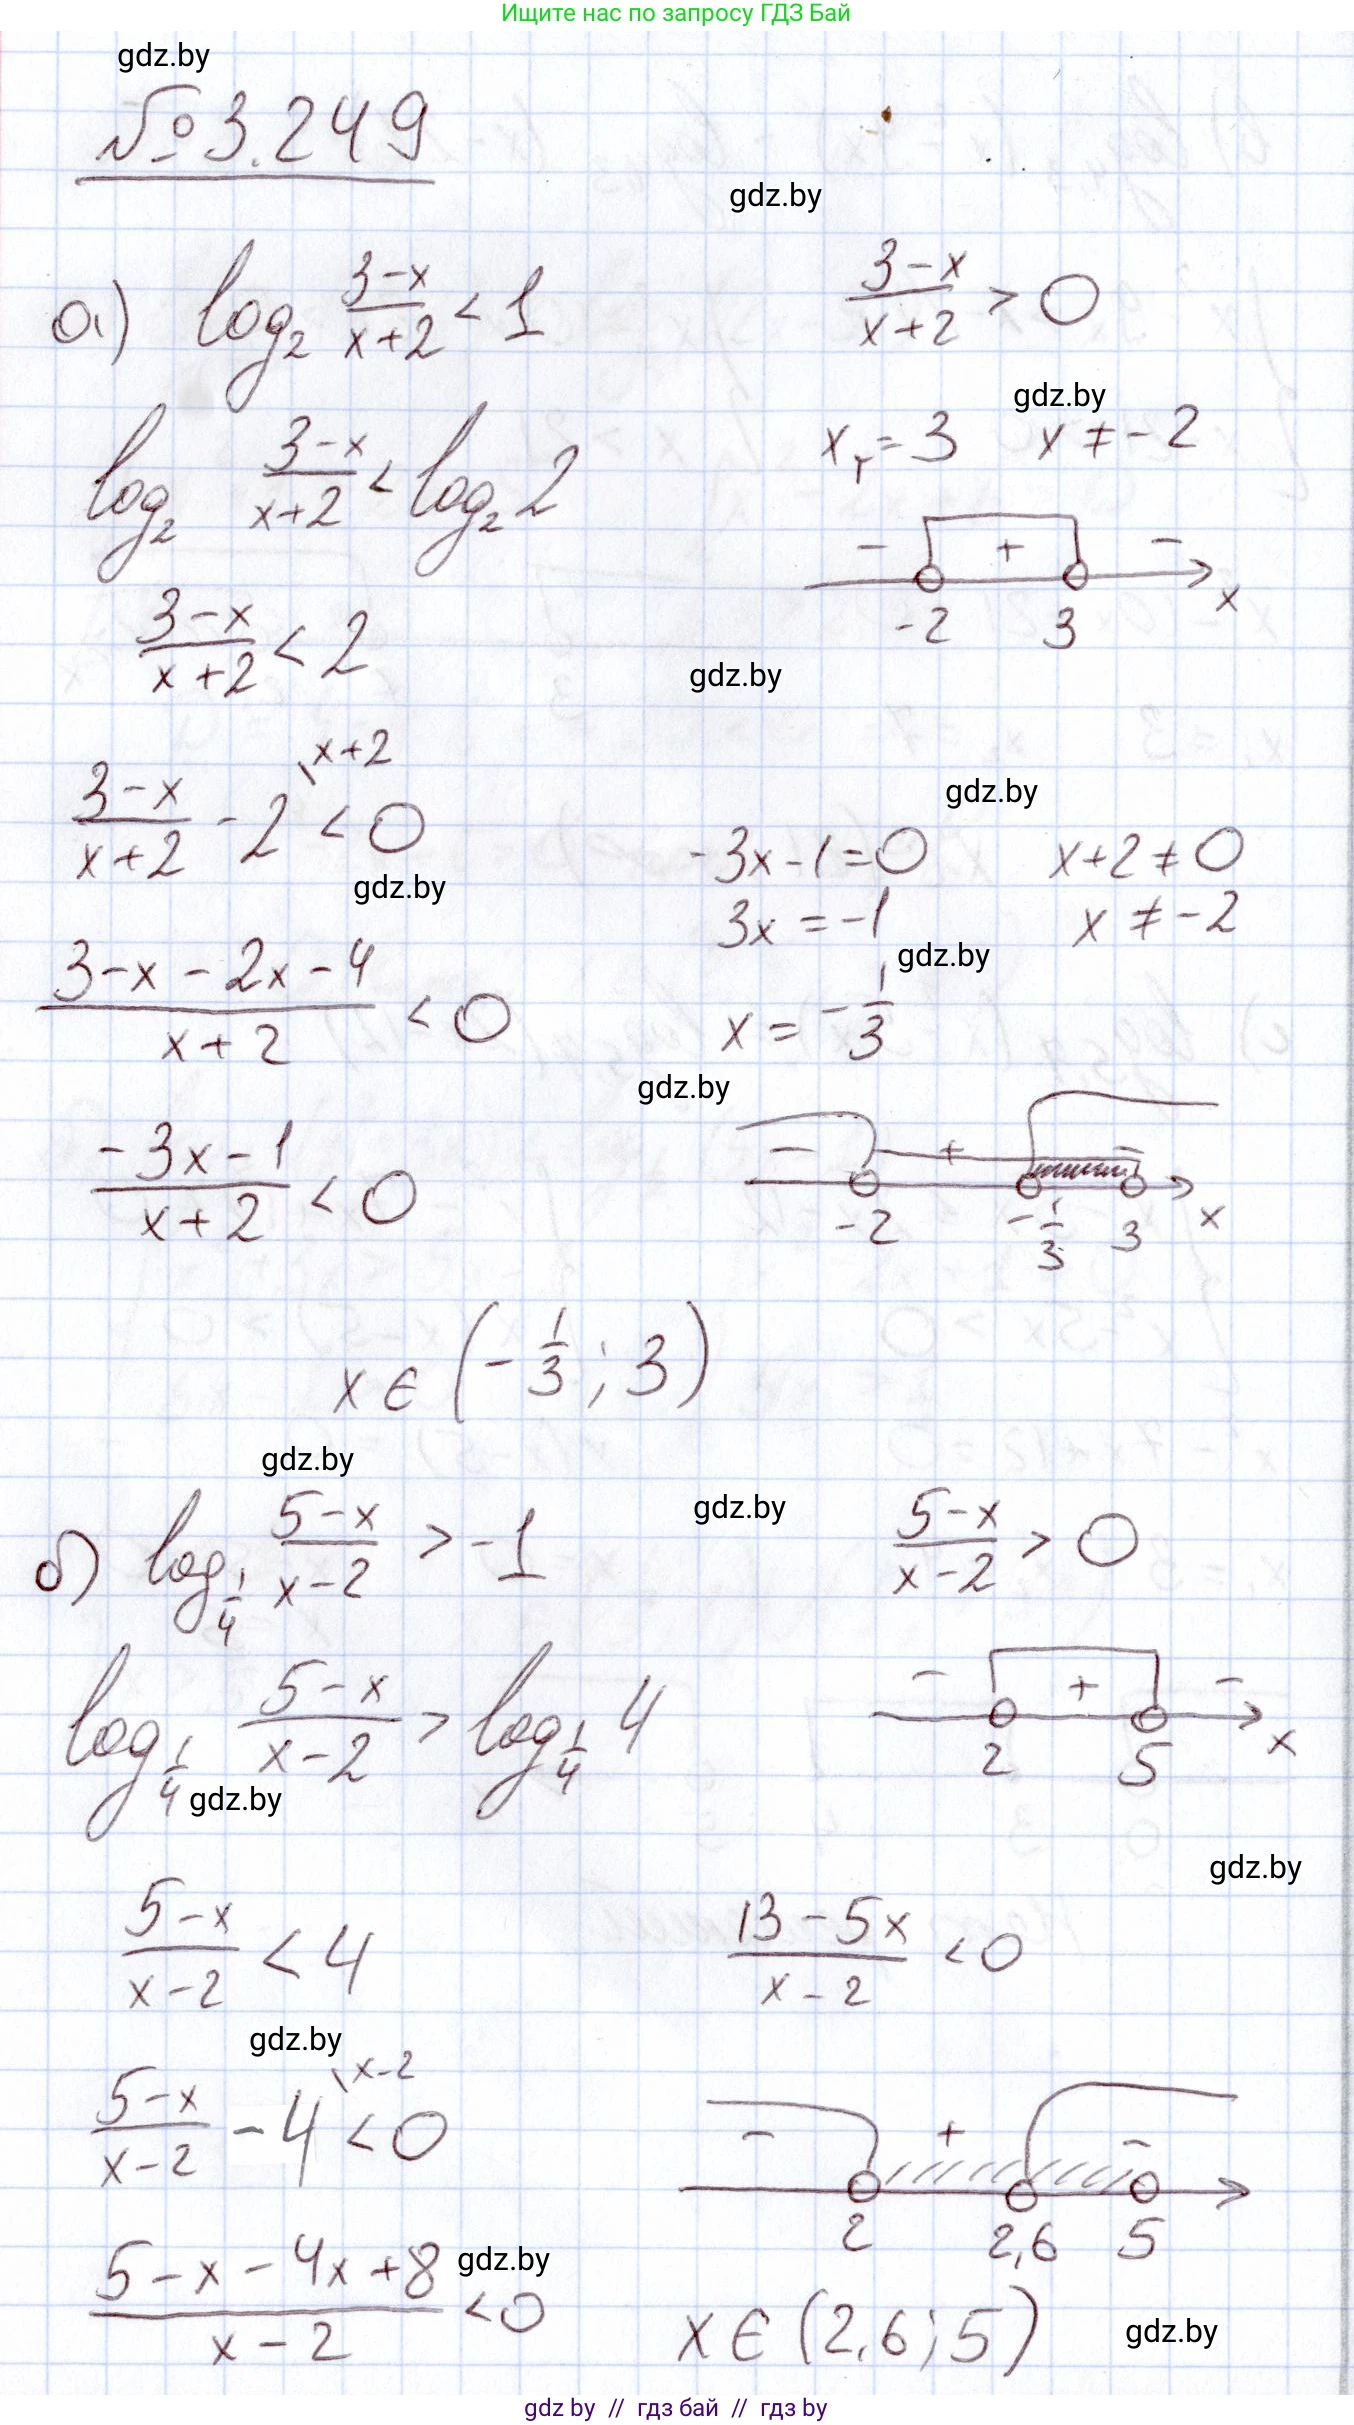 Ищите нас по запросу ГДЗ Бай
gdz.by
№ 3.249
gdz.by
а) log₂ (3-x)/(x+2) < 1
(3-x)/(x+2) > 0
gdz.by
log₂ (3-x)/(x+2) < log₂ 2
xᵣ = 3 x ≠ -2
- + -
-2 3 x
(3-x)/(x+2) < 2
gdz.by
(3-x)/(x+2) - 2 \x+2 < 0
gdz.by
-3x-1=0 x+2≠0
gdz.by
3x = -1 x ≠ -2
gdz.by
(3-x-2x-4)/(x+2) < 0
x = -1/3
gdz.by
(-3x-1)/(x+2) < 0
- + -
-2 -1/3 3 x
x ∈ (-1/3; 3)
gdz.by
gdz.by
б) log_{1/4} (5-x)/(x-2) > -1
(5-x)/(x-2) > 0
log_{1/4} (5-x)/(x-2) > log_{1/4} 4
- + -
2 5 x
gdz.by
gdz.by
(5-x)/(x-2) < 4
(13-5x)/(x-2) < 0
gdz.by
(5-x)/(x-2) - 4 \x-2 < 0
- + -
2 2,6 5
(5-x-4x+8)/(x-2) < 0
gdz.by
x ∈ (2,6; 5)
gdz.by
gdz by // гдз бай // гдз by